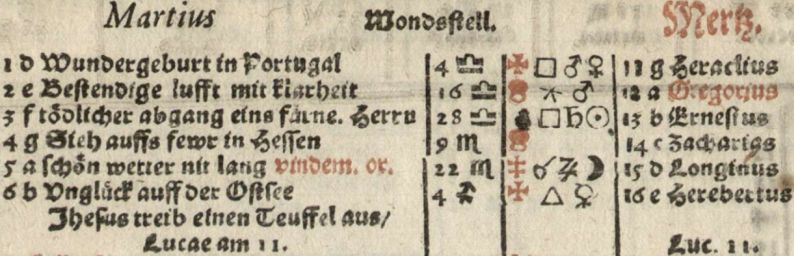 Martius Mondsstell. Mertz.
1 d Wundergeburt in Portugal 4 ♎ ✠ □ ♂ ♀ 11 g Heraclius
2 e Bestendige lufft mit klarheit 16 ♎ ⚹ ♂ 12 a Gregorius
3 f tödlicher abgang eins fürne. Herrn 28 ♎ □ ♄ ☉ 13 b Ernestus
4 g Sieh auffs fewr in Hessen 9 ♏ 14 c Zacharias
5 a schön wetter nit lang vindem. or. 22 ♏ ‡ ☌ ♃ ☽ 15 d Longinus
6 b Vnglück auff der Ostsee 4 ♐ ✠ △ ♀ 16 e Herebertus
Jhesus treib einen Teuffel aus/
Lucae am 11. Luc. 11.